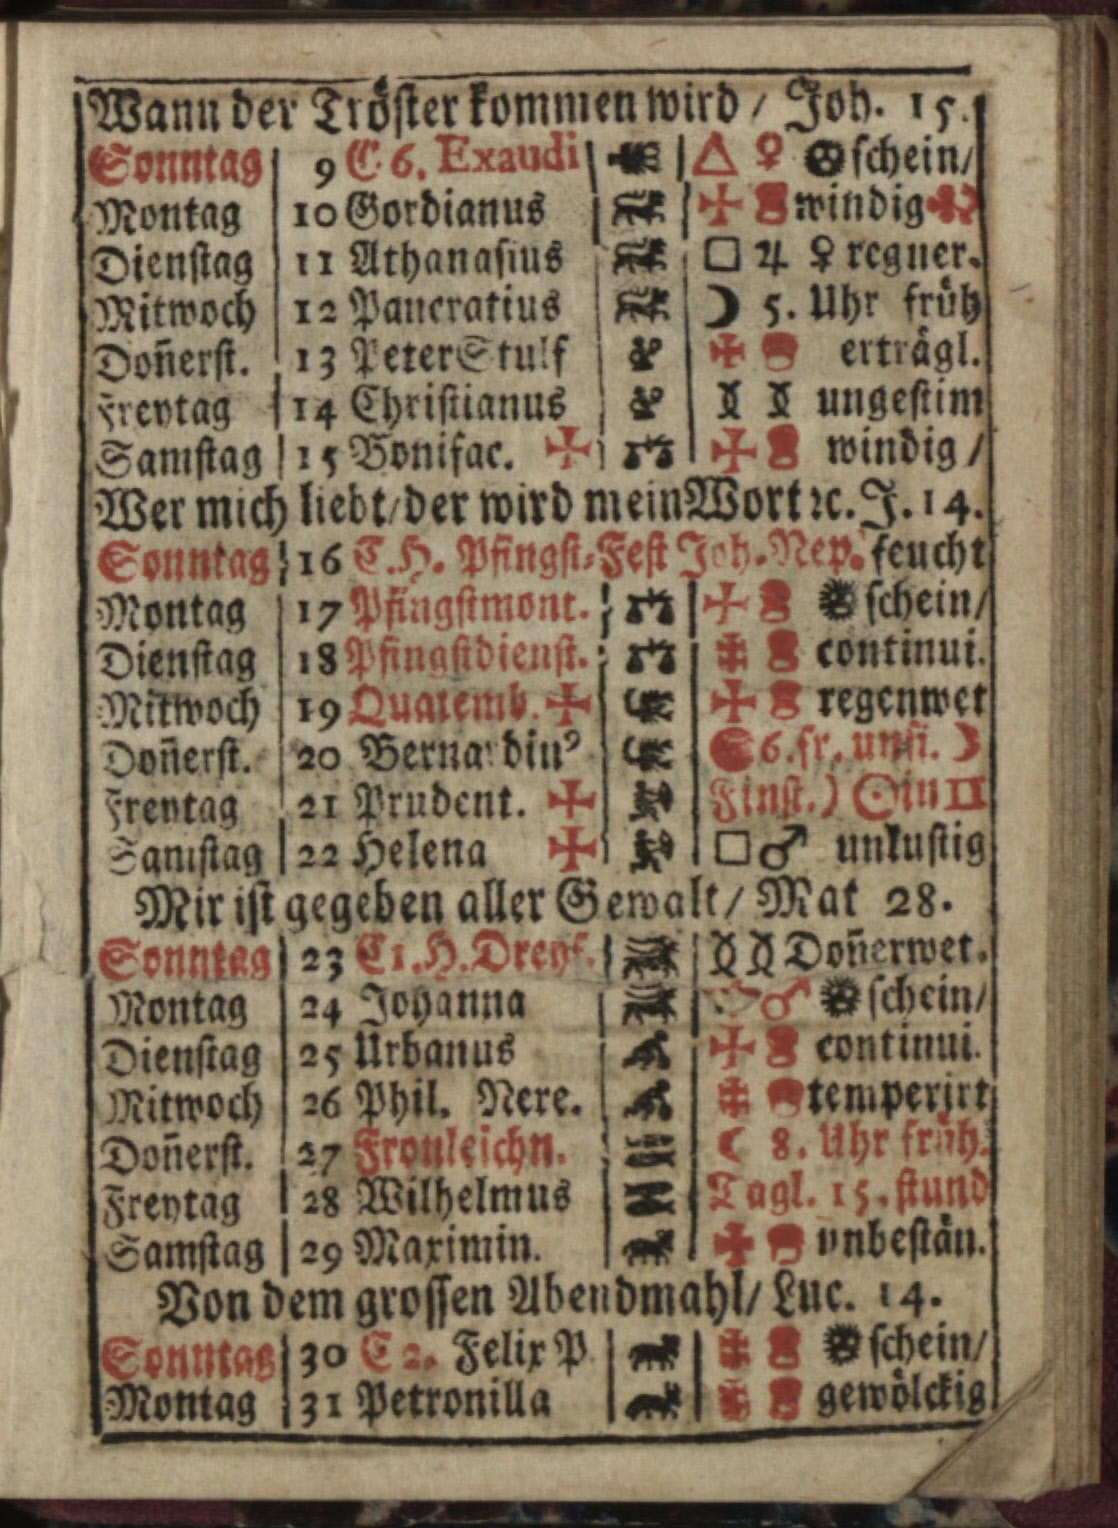 Wann der Tröster kommen wird / Joh. 15.
Sonntag 9 E. 6. Exaudi △ ♀ schein/
Montag 10 Gordianus windig
Dienstag 11 Athanasius □ ♃ ♀ regner.
Mitwoch 12 Pancratius ☽ 5. Uhr früh
Don̄erst. 13 Peter Stulf erträgl.
Freytag 14 Christianus ungestim
Samstag 15 Bonifac. ✠ windig /
Wer mich liebt/der wird mein Wort ꝛc. J. 14.
Sonntag 16 C. H. Pfingst-Fest Joh. Nep. feucht
Montag 17 Pfingstmont. schein/
Dienstag 18 Pfingstdienst. continui.
Mitwoch 19 Quatemb. ✠ regenwet
Don̄erst. 20 Bernardinꝰ 6. fr. unsi. ☽
Freytag 21 Prudent. ✠ Finst.) ☉ in ♊
Samstag 22 Helena ✠ □ ♂ unlustig
Mir ist gegeben aller Gewalt / Mat 28.
Sonntag 23 E1. H. Dreyf. Don̄erwet.
Montag 24 Johanna ♂ schein/
Dienstag 25 Urbanus continui.
Mitwoch 26 Phil. Nere. temperirt
Don̄erst. 27 Fronleichn. ☾ 8. Uhr früh.
Freytag 28 Wilhelmus Tagl. 15. stund
Samstag 29 Maximin. vnbestän.
Von dem grossen Abendmahl/ Luc. 14.
Sonntag 30 E 2. Felix P. schein/
Montag 31 Petronilla gewölckig